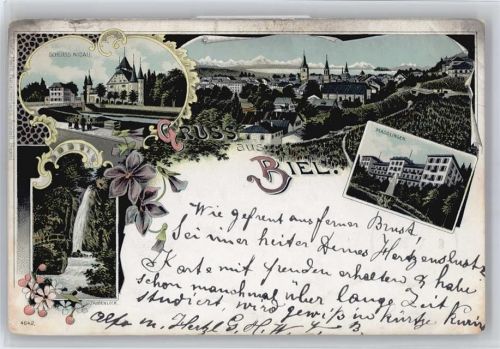 SCHLOSS NIDAU
GRUSS
AUS
BIEL.
MAGGLINGEN
TAUBENLOCH
4642
Wie gefreut aus ferner Brust,
Sei immer heiter Deines Hertzenslust
Karte mit freuden erhalten & habe
schon manchmal über lange Zeit
studiert, wird gewiss in kürze
also m. Herzl. G. H. W.